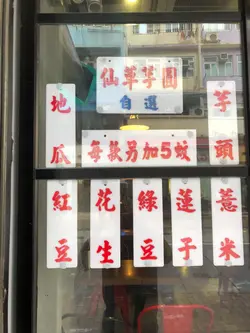 仙草芋圓
自選
地瓜
芋頭
每款另加5蚊
紅豆
花生
綠豆
蓮子
薏米